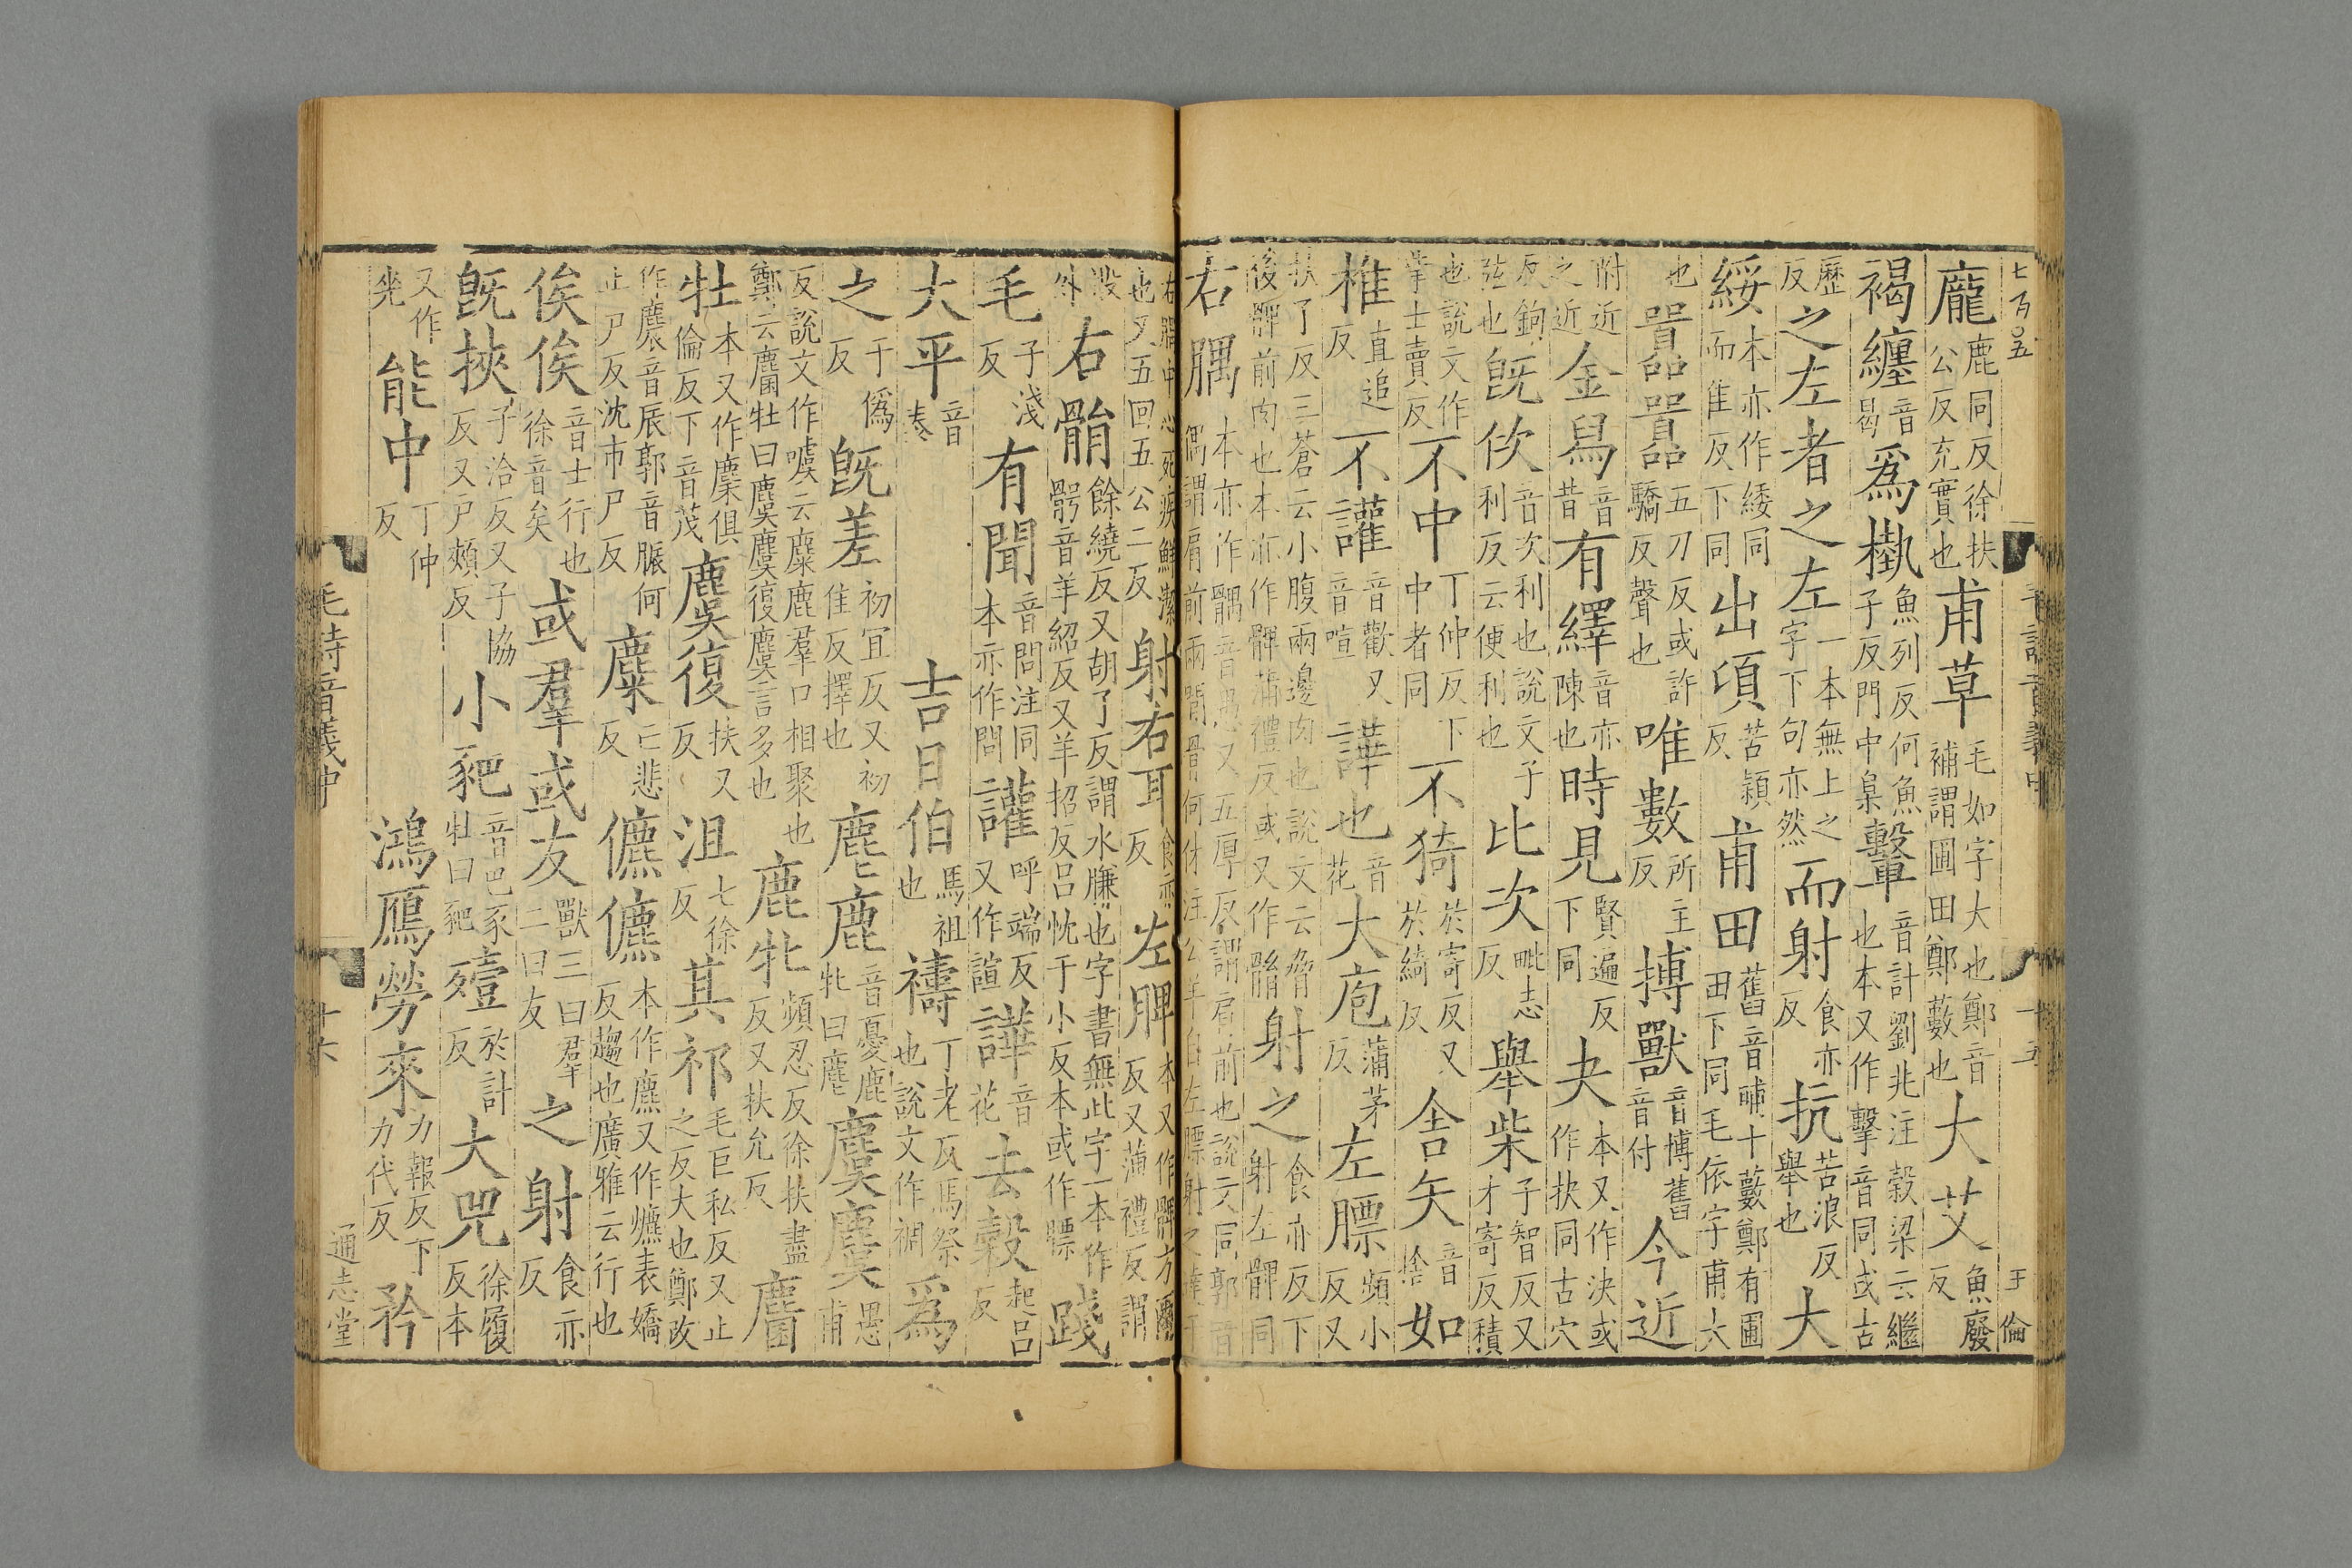 七百〇五
毛詩音義中 十五 王倫
龐鹿同反徐扶公反充實也甫草毛如字大也鄭音補謂圃田鄭藪也大艾魚廢反
褐纏音曷爲槸魚列反何魚子反門中臬轚音計劉兆注穀梁云繼也本又作擊音同或古
歷反之左者之左一本無上之字下句亦然而射食亦反抗苦浪反舉也大
綏本亦作緌同而隹反下同出頃苦潁反甫田舊音㽬十藪鄭有圃田下同毛依字甫大
也嚻嚻五刀反或許驕反聲也唯數所主反搏獸音博舊音付今近
附近之近金舄音昔有繹音亦陳也時見賢遍反下同夬本又作決或作抉同古穴
反鉤弦也旣佽音次利也說文子利反云便利也比次毗志反舉柴子智反又才寄反積
也說文作㧘士賣反不中丁仲反下中者同不猗於寄反又於綺反舍矢音捨如
椎直追反不讙音歡又音喧譁也音花大庖蒲茅反左膘頻小反又
扶了反三蒼云小腹兩邊肉也說文云脅後髀前肉也本亦作髀蒲禮反或又作䯚射之食亦反下射左髀同
右腢本亦作髃音愚又五厚反謂肩前也說文同郭音偶謂肩前兩間骨何休注公羊自左膘射之達于
右腢中心死疾鮮潔也又五回五公二反射右耳食亦反左脾本又作髀方爾反又蒲禮反謂
股外右䯚餘繞反又胡了反謂水膁也字書無此字一本作骬音羊紹反又羊招反呂忱于小反本或作膘踐
毛子淺反有聞音問注同本亦作問讙呼端反又作諠譁音花去穀起呂反
大平音泰吉日伯馬祖也禱丁老反馬祭也說文作禂爲
之于僞反旣差初宜反又初隹反擇也麀鹿音憂鹿牝曰麀麌麌愚甫
反說文作噳云麋鹿羣口相聚也鄭云麕牡曰麌麌復麌言多也鹿牝頻忍反徐扶盡反又扶允反麕
牡本又作麇俱倫反下音茂麌復扶又反沮七徐反其祁毛巨私反又止之反大也鄭改
作麎音辰郭音脤何止尸反沈市尸反麋亡悲反儦儦本作麃又作爊表嬌反趨也廣雅云行也
俟俟音士行也徐音矣或羣或友獸三曰羣二曰友之射食亦反
旣挾子洽反又子協反又户頰反小豝音巴豕牡曰豝殪於計反大兕徐履反本
又作𠒅能中丁仲反鴻鴈勞來力報反下力代反矜
毛詩音義中 十六 通志堂